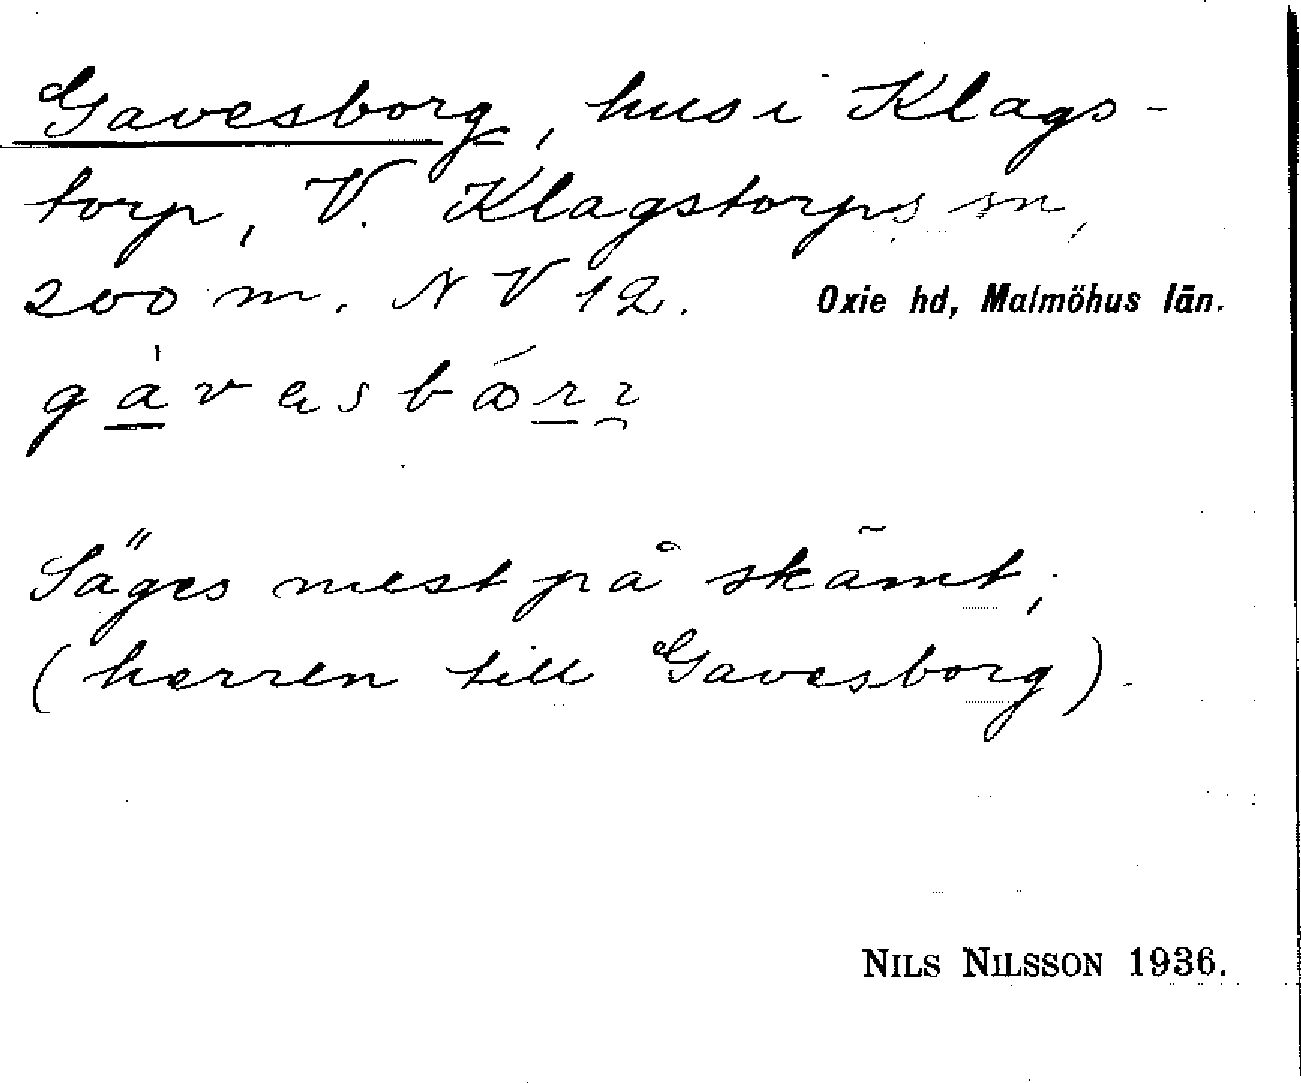 Gavesborg, hus i Klags-
torp, V. Klagstorps sn,
200 m. NV 12. Oxie hd, Malmöhus län.
Säges mest på skämt,
(herren till Gavesborg).
NILS NILSSON 1936.